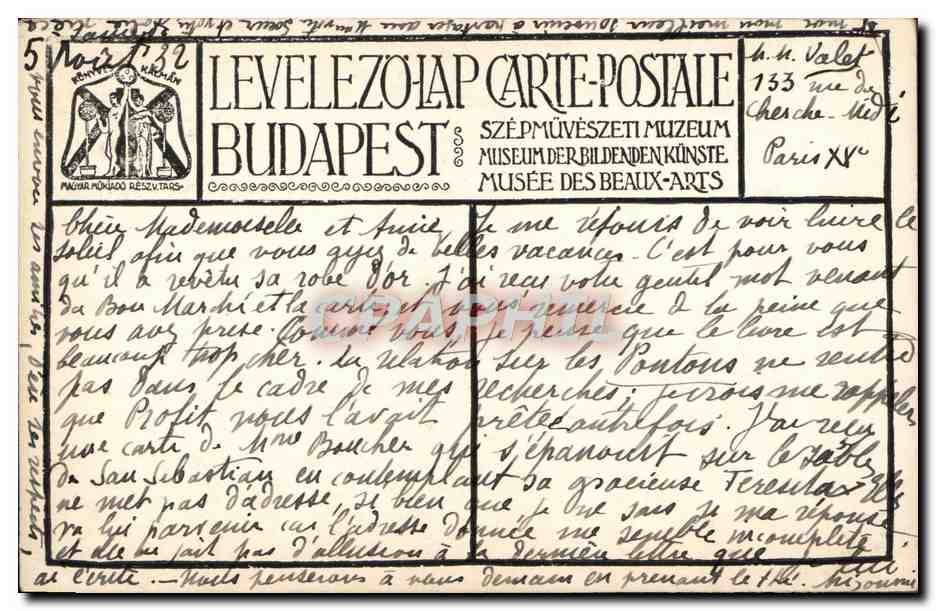 5 Août 32
KÖNYVES KÁLMÁN
MAGYAR MŰKIADÓ RÉSZV. TÁRS.
LEVELEZŐ-LAP CARTE-POSTALE
BUDAPEST
SZÉPMŰVÉSZETI MUZEUM
MUSEUM DER BILDENDEN KÜNSTE
MUSÉE DES BEAUX-ARTS
M. M. Valet
133 rue du
Cherche-Midi
Paris XVe
Chère Mademoiselle et Amie, Je me réjouis de voir luire le
soleil afin que vous ayez de belles vacances. C'est pour vous
qu'il a revêtu sa robe d'or. J'ai reçu votre gentil mot venant
du Bon Marché et la carte et vous remercie de la peine que
vous avez prise. Comme vous, je pense que le livre est
beaucoup trop cher. La relation sur les Pontons ne rentre
pas dans le cadre de mes recherches; je crois me rappeler
que Profit nous l'avait prêté autrefois. J'ai reçu
une carte de Mme Boucher qui s'épanouit sur le sable
de San Sebastian en contemplant sa gracieuse Teresita. Elle
ne met pas d'adresse, si bien que je ne sais si ma réponse
va lui parvenir car l'adresse donnée me semble incomplète
et elle ne fait pas d'allusion à la dernière lettre que je lui
ai écrite. - Nous penserons à vous demain en prenant le thé.
CPAPHIL